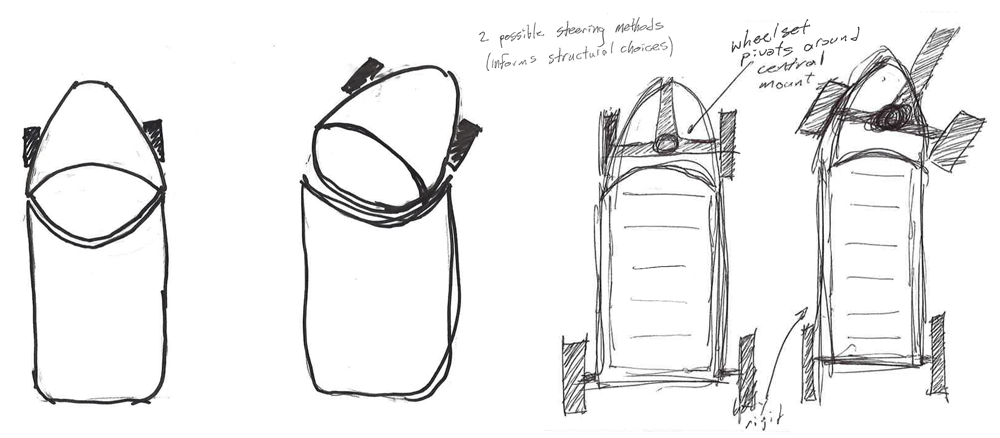 2 possible steering methods
(informs structural choices)
wheelset
pivots around
central
mount
rigid